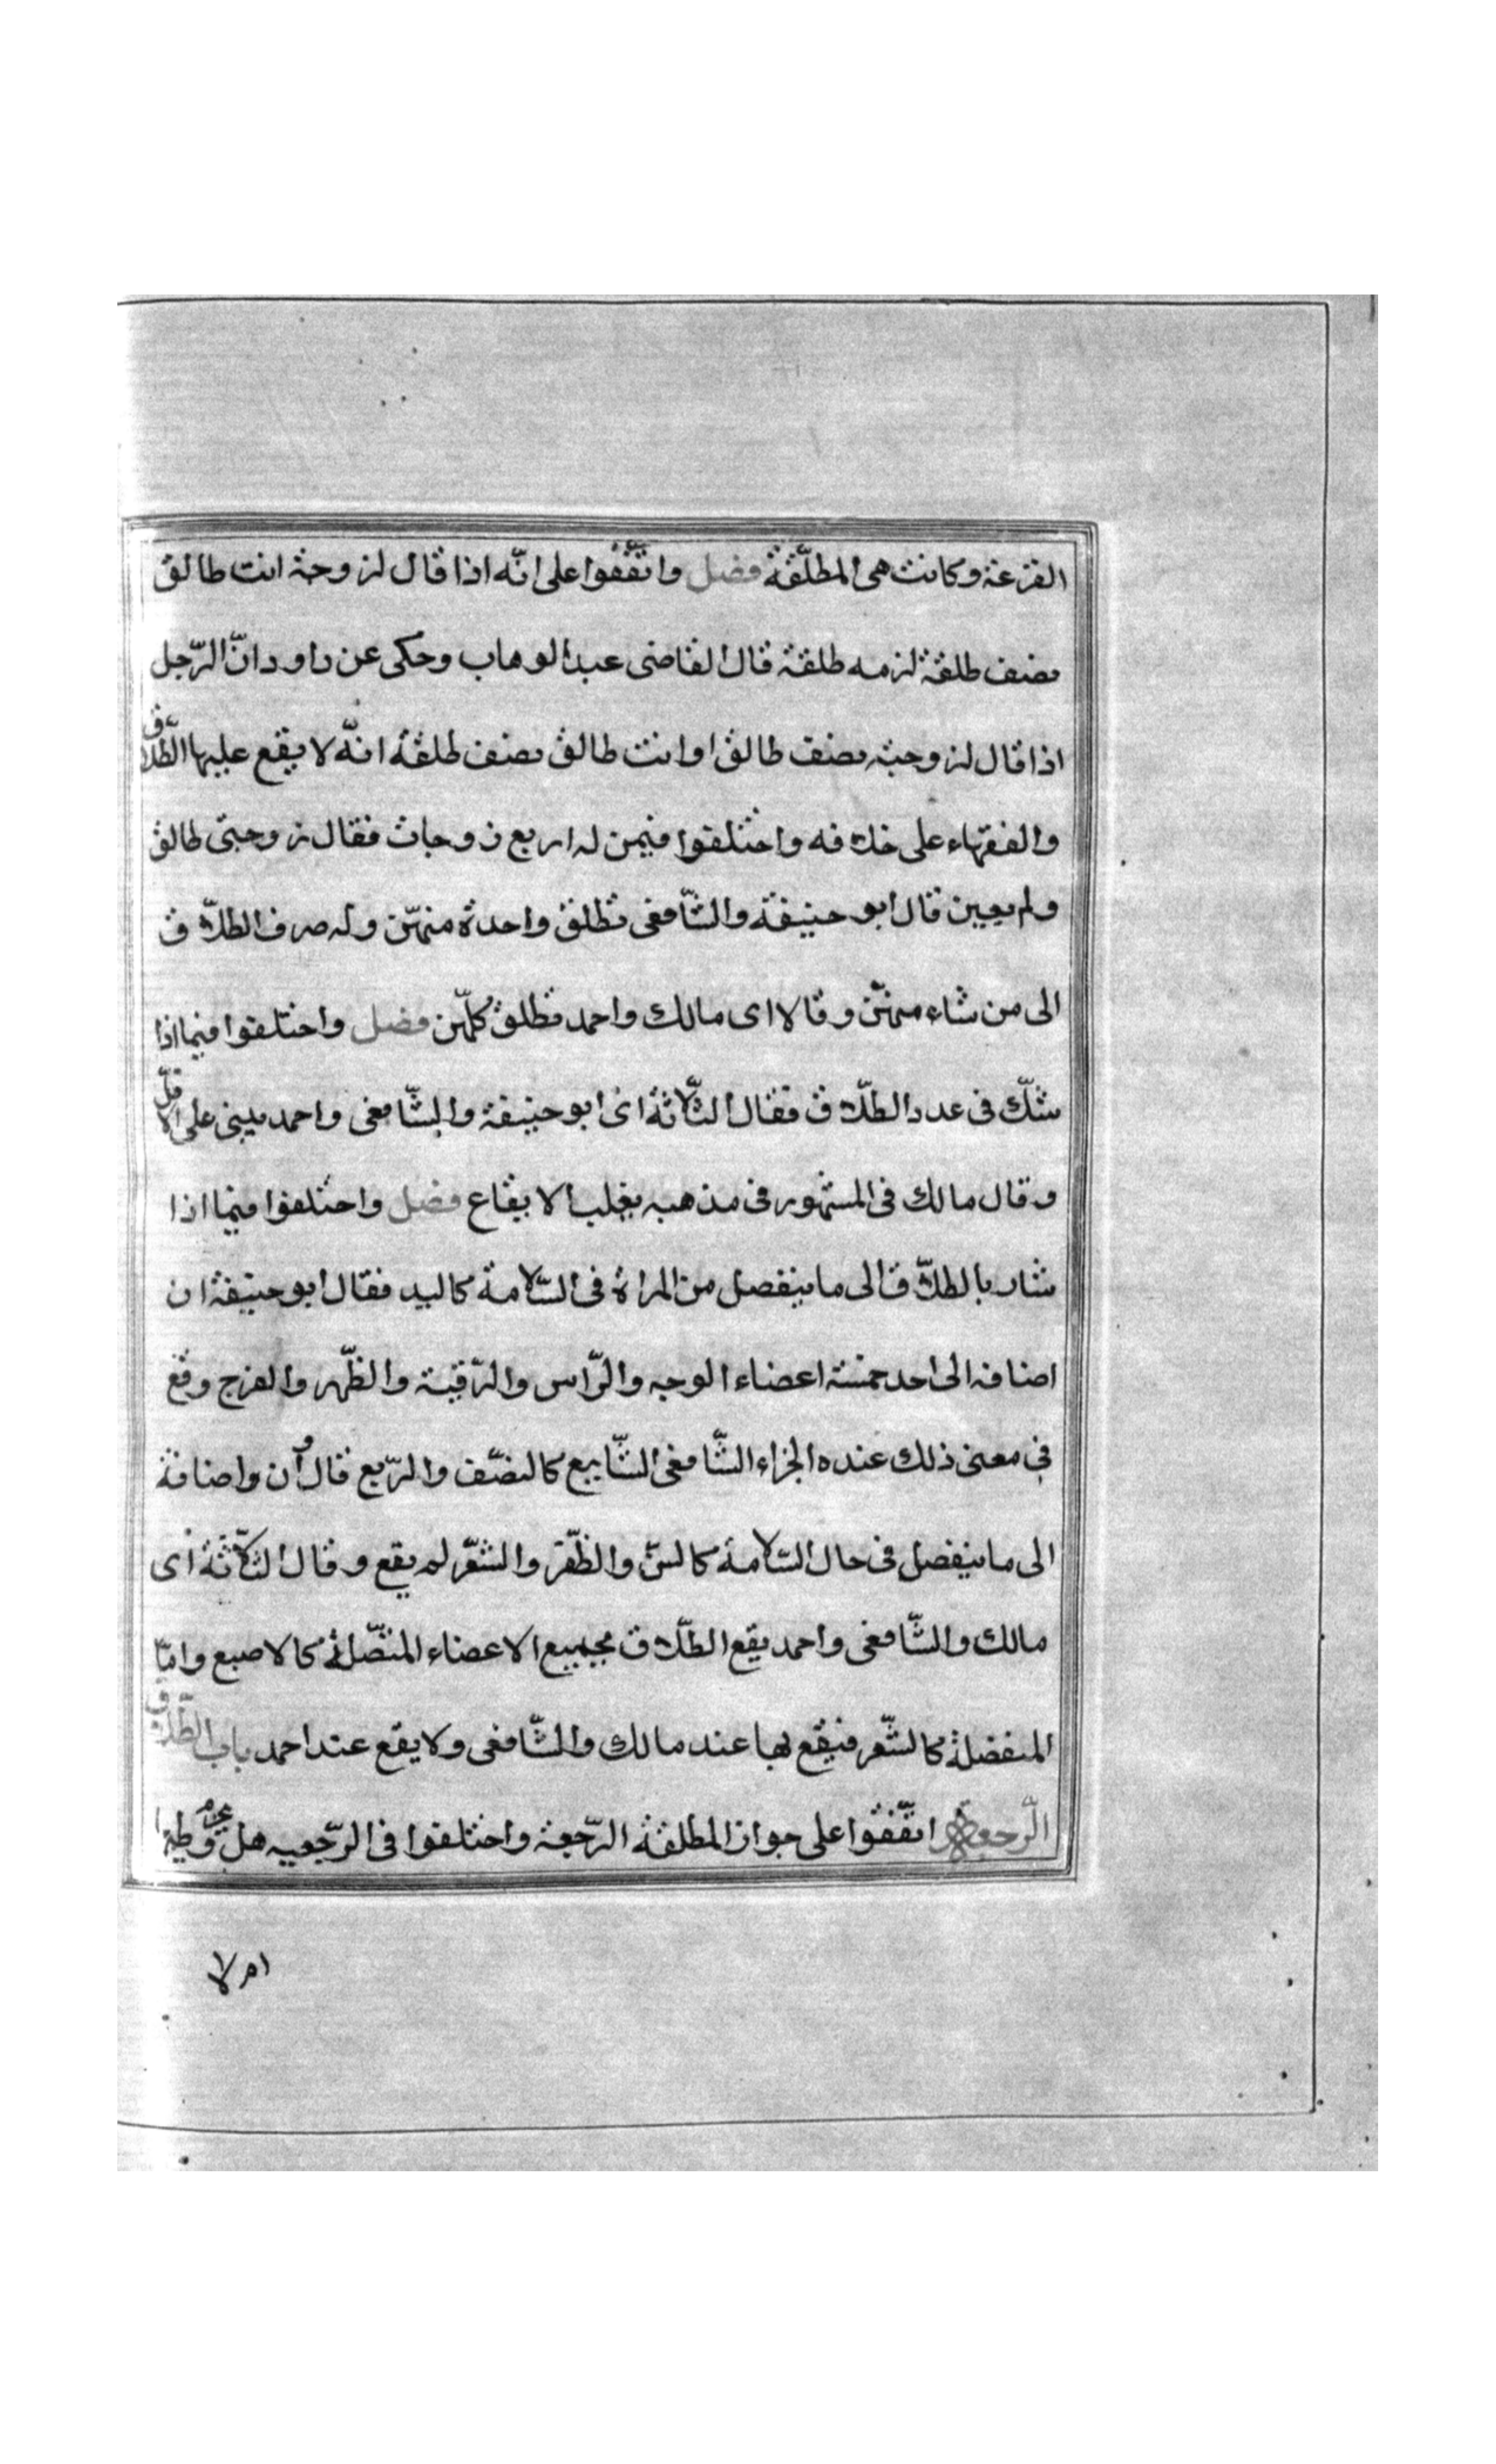 القرعة وكانت هى المطلّقة فصل واتّفقوا على انّه اذا قال لزوجته انت طالق
نصف طلقة لزمه طلقة قال القاضى عبد الوهاب وحكى عن داود انّ الرّجل
اذا قال لزوجته نصف طالق او انت طالق نصف طلقة انّه لا يقع عليها الطّلاق
والفقهاء على خلافه واختلفوا فيمن له اربع زوجات فقال زوجتى طالق
ولم يعين قال ابو حنيفة والشّافعى تطلق واحدة منهنّ وله صرف الطلاّق
الى من شاء منهنّ وقالا اى مالك واحمد تطلق كلّهن فصل واختلفوا فيما اذا
شكّ فى عدد الطلّاق فقال الثّلاثة اى ابو حنيفة والشّافعى واحمد يبنى على الاقلّ
وقال مالك فى المشهور فى مذهبه يغلب الايقاع فصل واختلفوا فيما اذا
شار بالطلّاق الى ما ينفصل من المراة فى السّلامة كاليد فقال ابو حنيفة ان
اضافه الى احد خمسة اعضاء الوجه والرّاس والرّقبة والظّهر والفرج وقع
فى معنى ذلك عنده الجزاء الشّافعى الشّايع كالنصّف والرّبع قال وان واضافة
الى ما ينفصل فى حال السّلامة كالسّن والظّفر والشّعر لم يقع وقال الثّلاثة اى
مالك والشّافعى واحمد يقع الطلّاق بجميع الاعضاء المتصّلة كالاصبع وامّا
المنفصلة كالشّعر فيقع بها عند مالك والشّافعى ولا يقع عند احمد باب الطّلاق
الرّجعة اتّفقوا على جواز المطلقة الرّجعة واختلفوا فى الرّجعيه هل يحرم وطيها
ام لا